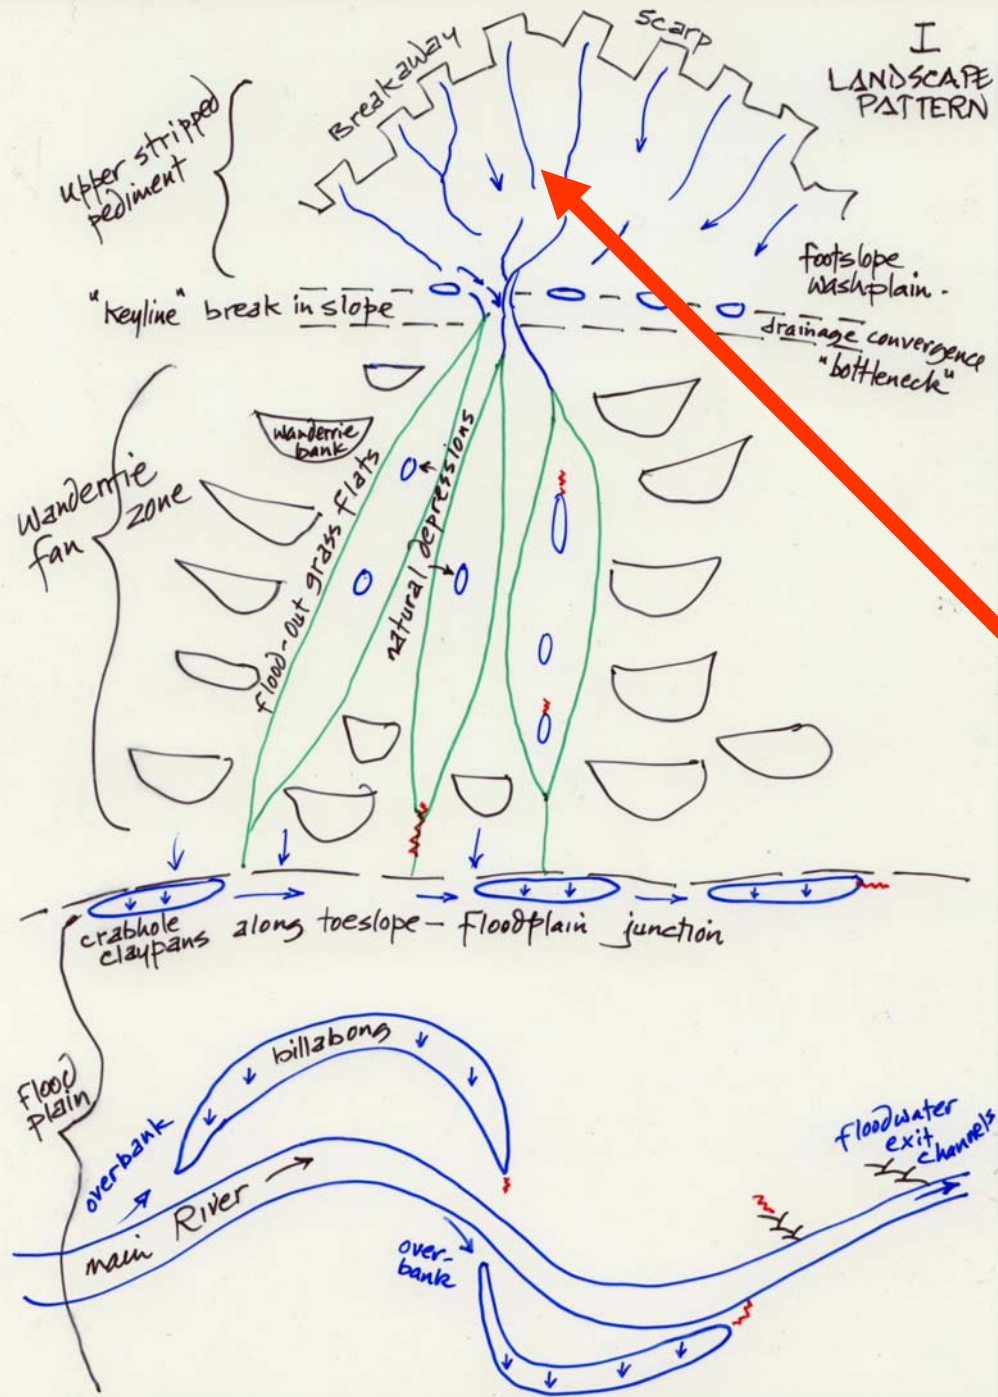 I
LANDSCAPE
PATTERN
Breakaway
scarp
upper stripped
pediment
footslope
washplain.
"Keyline" break in slope
drainage convergence
"bottleneck"
wanderrie
bank
Wanderrie
fan zone
flood-out grass flats
natural depressions
crabhole
claypans along toeslope - floodplain junction
billabong
flood
plain
overbank
main River
over-
bank
floodwater
exit
channels